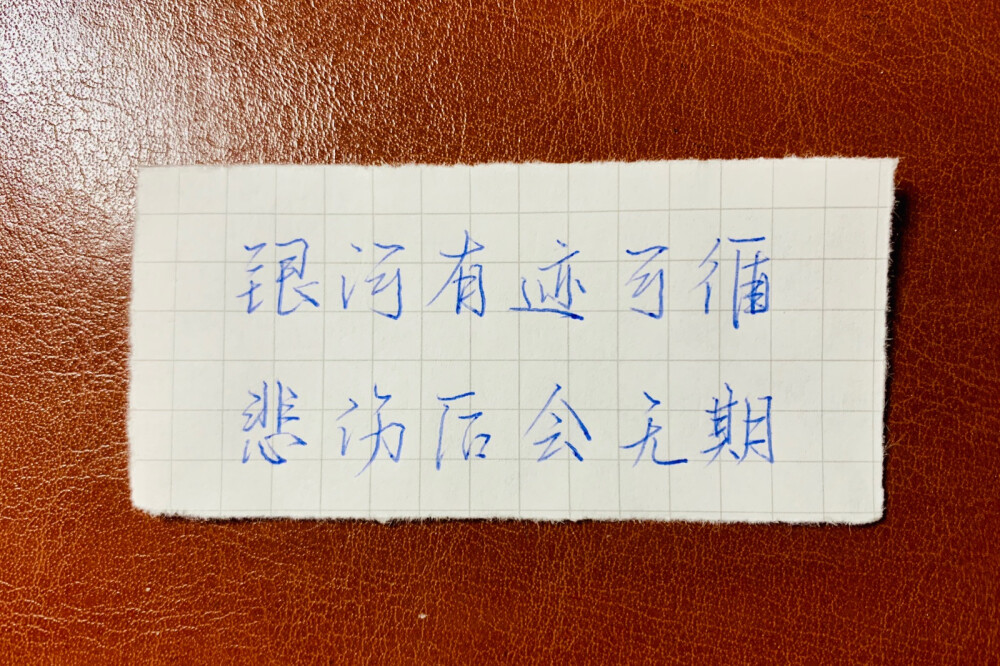 银河有迹可循
悲伤后会无期